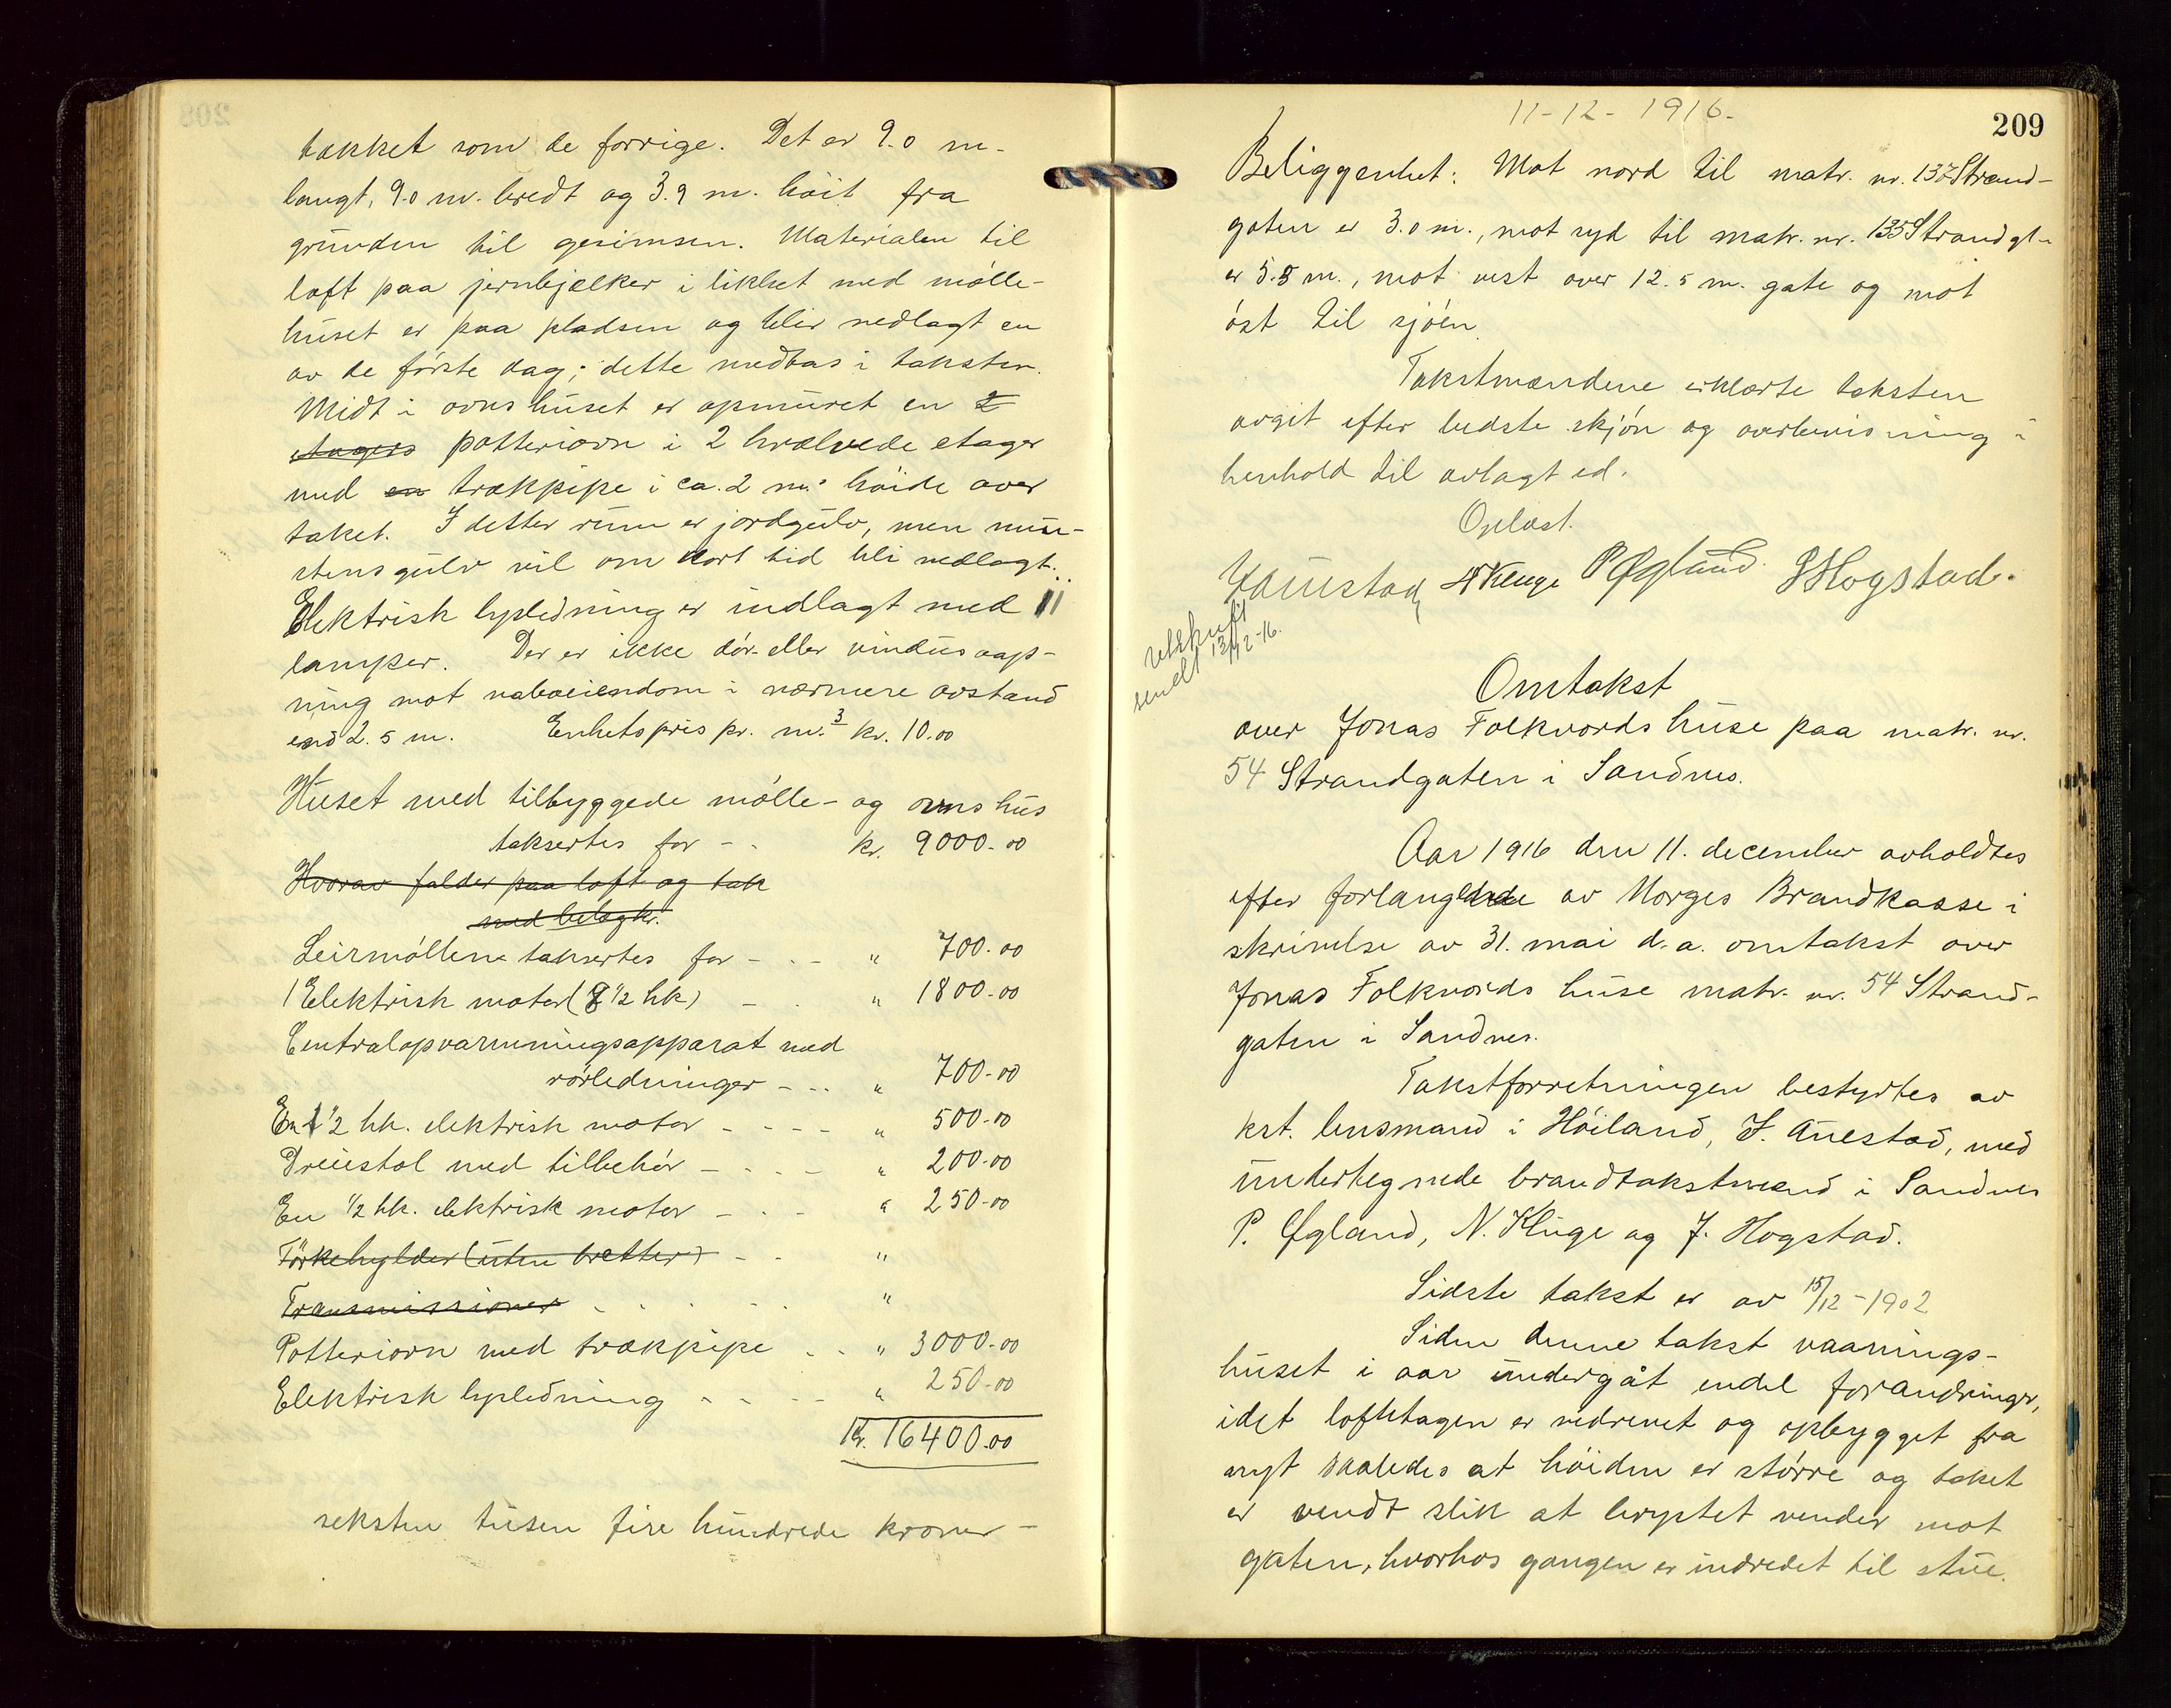 takket som de forrige. Det er 9.0 m.
langt, 9.0 m. bredt og 3.9 m. höit fra
grunden til gesimsen. Materialen til
loft paa jernbjælker i likhet med mölle-
huset er paa pladsen og blir nedlagt en
av de förste dag; dette medtas i taksten.
Midt i ovnshuset er opmuret en 2
etagers potteriovn i 2 hvælvede etager
med en trækpipe i ca. 2 m.s höide over
taket. I dette rum er jordgulv, men mur-
stensgulv vil om kort tid bli nedlagt.
Elektrisk lysledning er indlagt med 11
lamper. Der er ikke dör- eller vindusaap-
ning mot naboeiendom i nærmere avstand
end 2.5 m. Enhetspris pr. m.3 kr. 10.00
Huset med tilbyggede mölle- og ovnshus
taksertes for - - kr. 9000.00
Hvorav falder paa loft og tak
med belög kr.
Leirmöllene taksertes for - - - " 700.00
1 Elektrisk motor (7 1/2 hk) - - " 1800.00
Centralopvarmningsapparat med
rörledninger - - - " 700.00
En 1 1/2 hk. elektrisk motor - - - - " 500.00
Dreiestol med tilbehör - - - - " 200.00
En 1/2 hk. elektrisk motor - - - " 250.00
Törkehylder (uten brætter) - - "
Transmissioner - - - - "
Potteriovn med trækpipe - - " 3000.00
Elektrisk lysledning - - - - " 250.00
Kr. 16400.00
seksten tusen fire hundrede kroner -
11-12-1916.
209
Beliggenhet: Mot nord til matr. nr. 137 Strand-
gaten er 3.0 m., mot syd til matr. nr. 135 Strandgt.
er 5.5 m., mot vest over 12.5 m. gate og mot
öst til sjöen.
Takstmændene erklærte taksten
avgit efter bedste skjön og overbevisning i
henhold til avlagt ed.
Oplæst.
J Auestad N Kluge P Øgland J Hogstad.
utskrift
sendt 13/12-16.
Omtakst
over Jonas Folkvords huse paa matr. nr.
54 Strandgaten i Sandnes.
Aar 1916 den 11. december avholdtes
efter forlangende av Norges Brandkasse i
skrivelse av 31. mai d. a. omtakst over
Jonas Folkvords huse matr. nr. 54 Strand-
gaten i Sandnes.
Takstforretningen bestyrtes av
kst. lensmand i Höiland, J. Auestad, med
undertegnede brandtakstmænd i Sandnes
P. Øgland, N. Kluge og J. Hogstad.
Sidste takst er av 15/12-1902
Siden denne takst vaanings-
huset i aar undergåt endel forandringer,
idet loftetagen er nedrevet og opbygget fra
nyt saaledes at höiden er större og taket
er vendt slik at brystet vender mot
gaten, hvorhos gangen er indredet til stue.